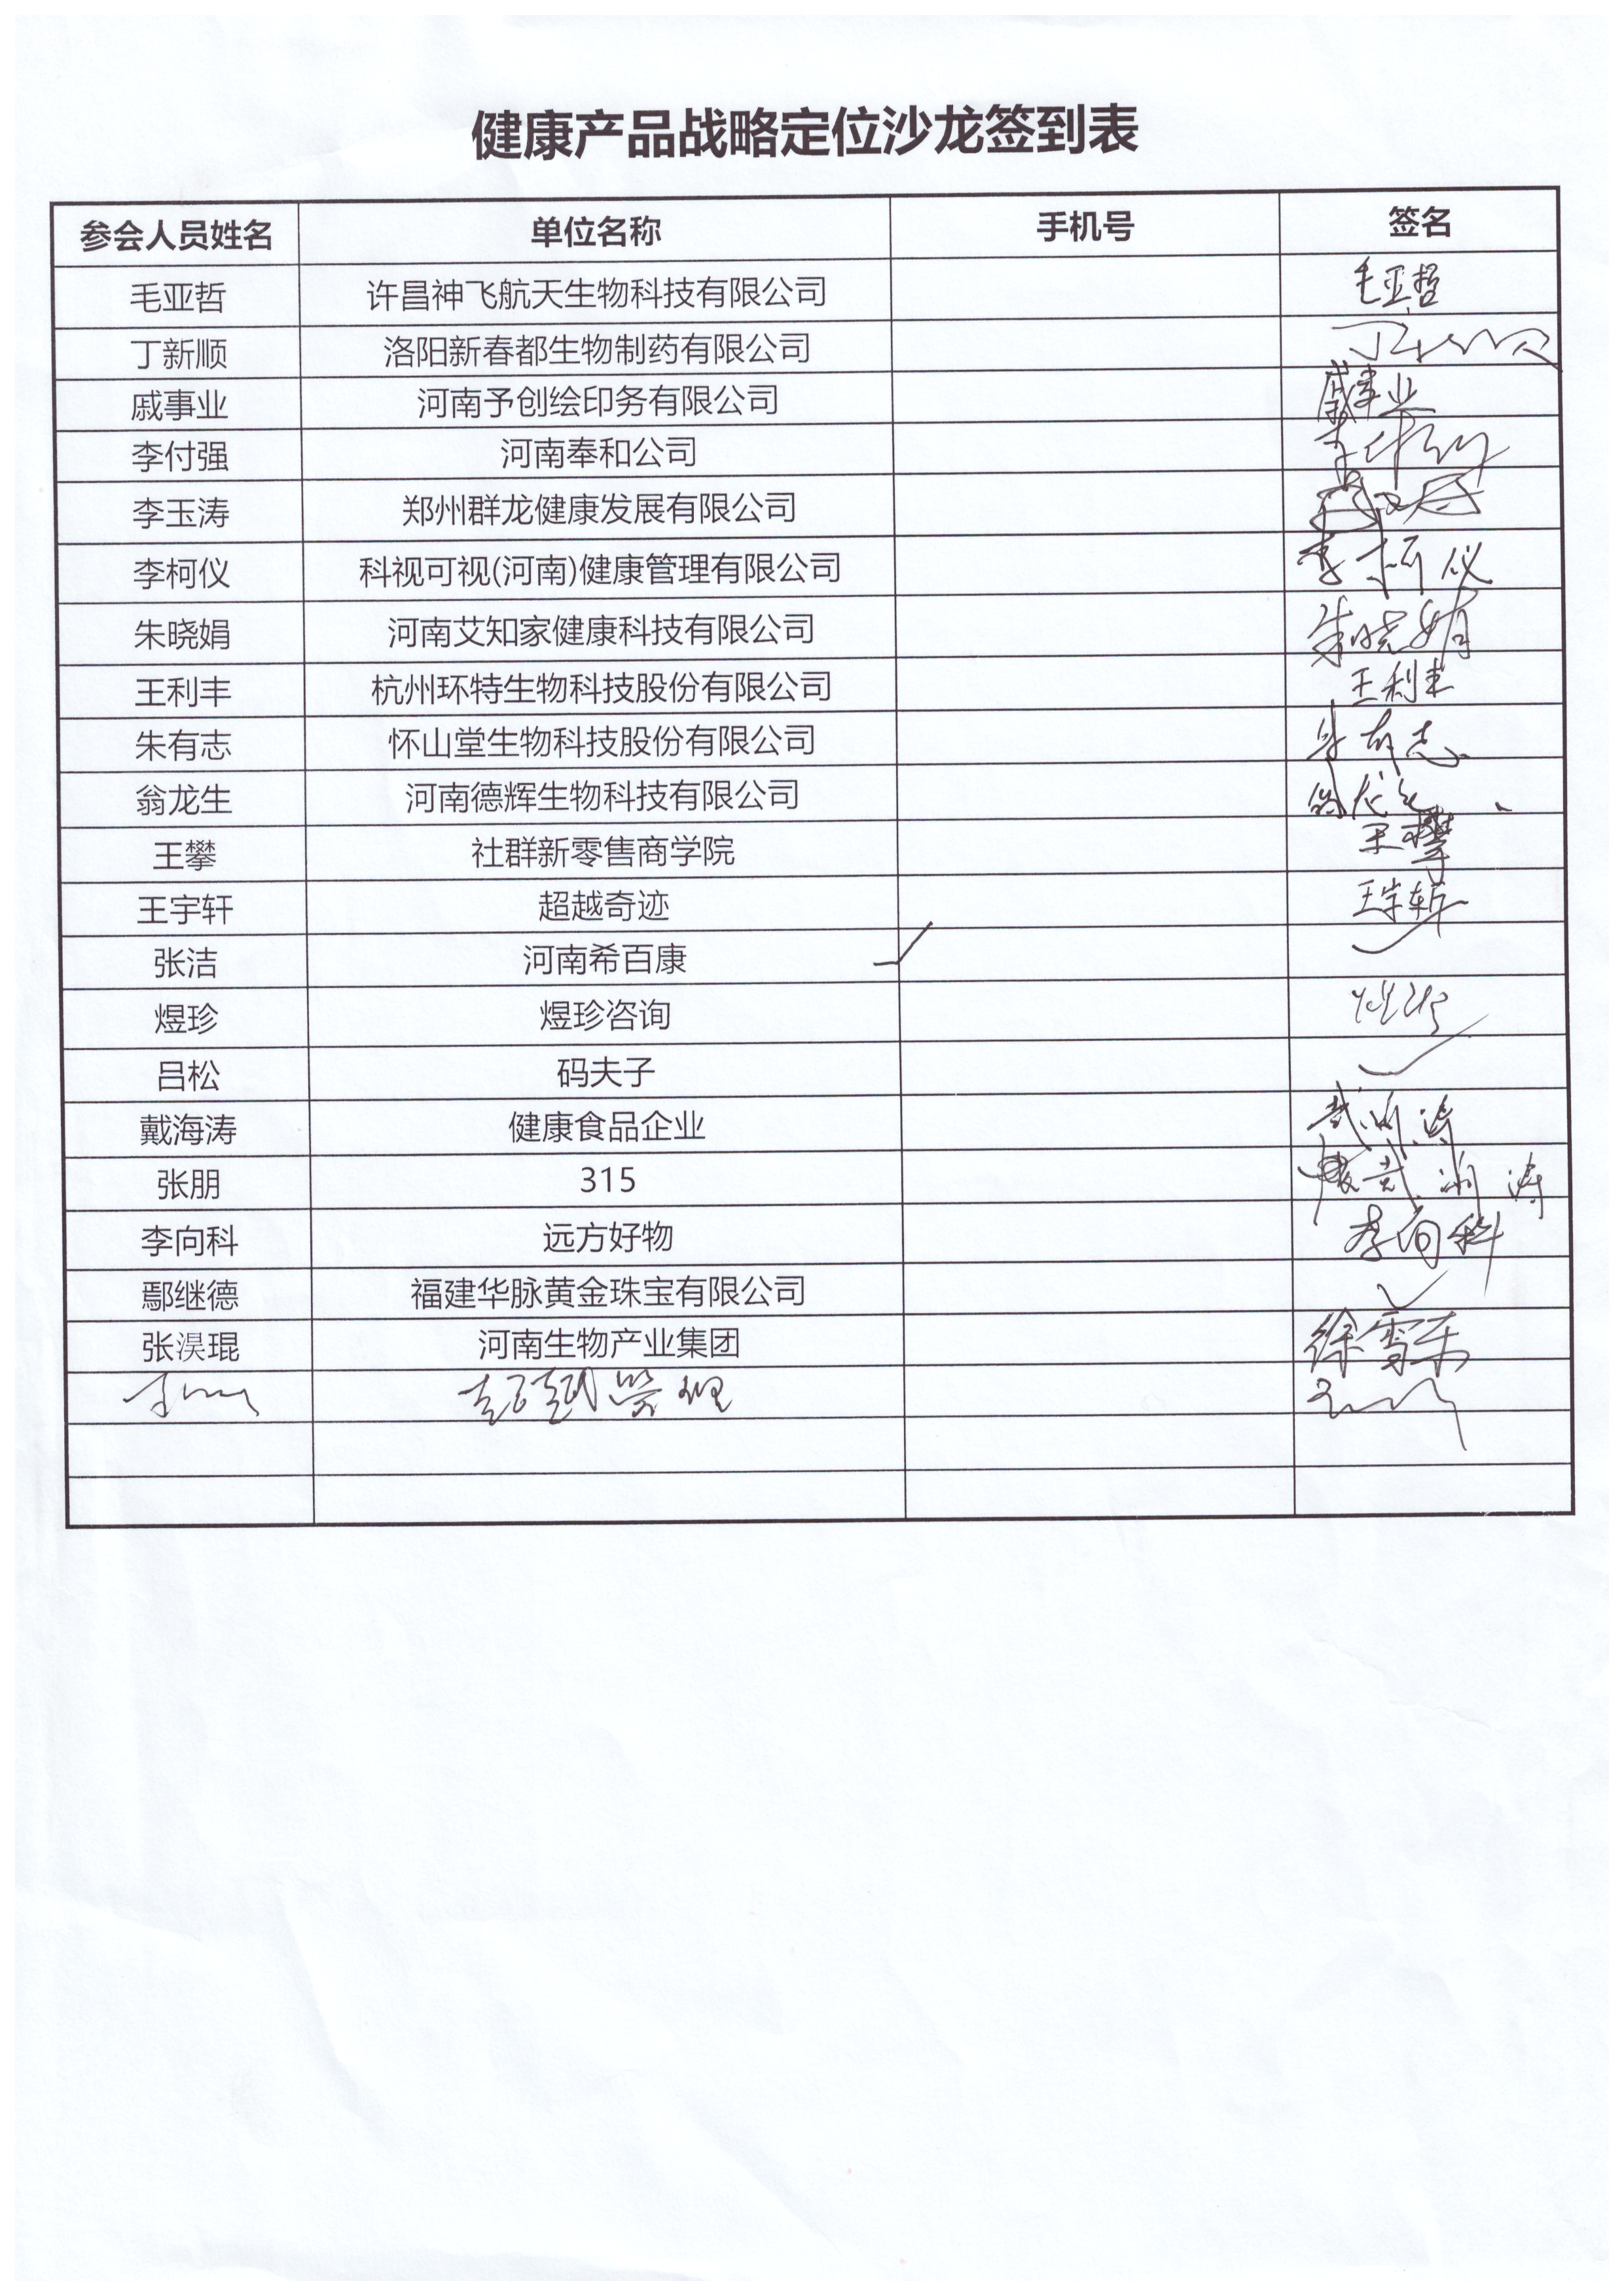 健康产品战略定位沙龙签到表
参会人员姓名 单位名称 手机号 签名
毛亚哲 许昌神飞航天生物科技有限公司 毛亚哲
丁新顺 洛阳新春都生物制药有限公司
戚事业 河南予创绘印务有限公司 戚事业
李付强 河南奉和公司
李玉涛 郑州群龙健康发展有限公司
李柯仪 科视可视(河南)健康管理有限公司 李柯仪
朱晓娟 河南艾知家健康科技有限公司 朱晓娟
王利丰 杭州环特生物科技股份有限公司 王利丰
朱有志 怀山堂生物科技股份有限公司 朱有志
翁龙生 河南德辉生物科技有限公司 翁龙生
王攀 社群新零售商学院 王攀
王宇轩 超越奇迹 王宇轩
张洁 河南希百康
煜珍 煜珍咨询 煜珍
吕松 码夫子
戴海涛 健康食品企业
张朋 315
李向科 远方好物 李向科
鄢继德 福建华脉黄金珠宝有限公司
张淏琨 河南生物产业集团 徐雪东
超越管理